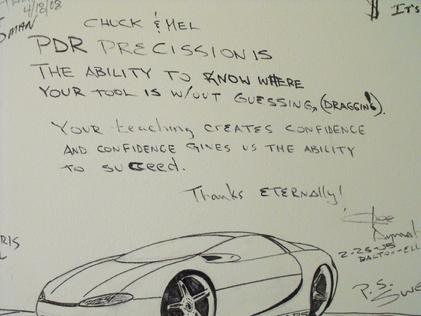 4/18/08
SMAN
It's
CHUCK & MEL
PDR PRECISSION IS
THE ABILITY TO KNOW WHERE
YOUR TOOL IS W/OUT GUESSING, (DRAGGING!).
Your teaching CREATES CONFIDENCE
AND CONFIDENCE GIVES US THE ABILITY
to succeed.
Thanks ETERNALLY!
2-26-08
RIS
P.S.